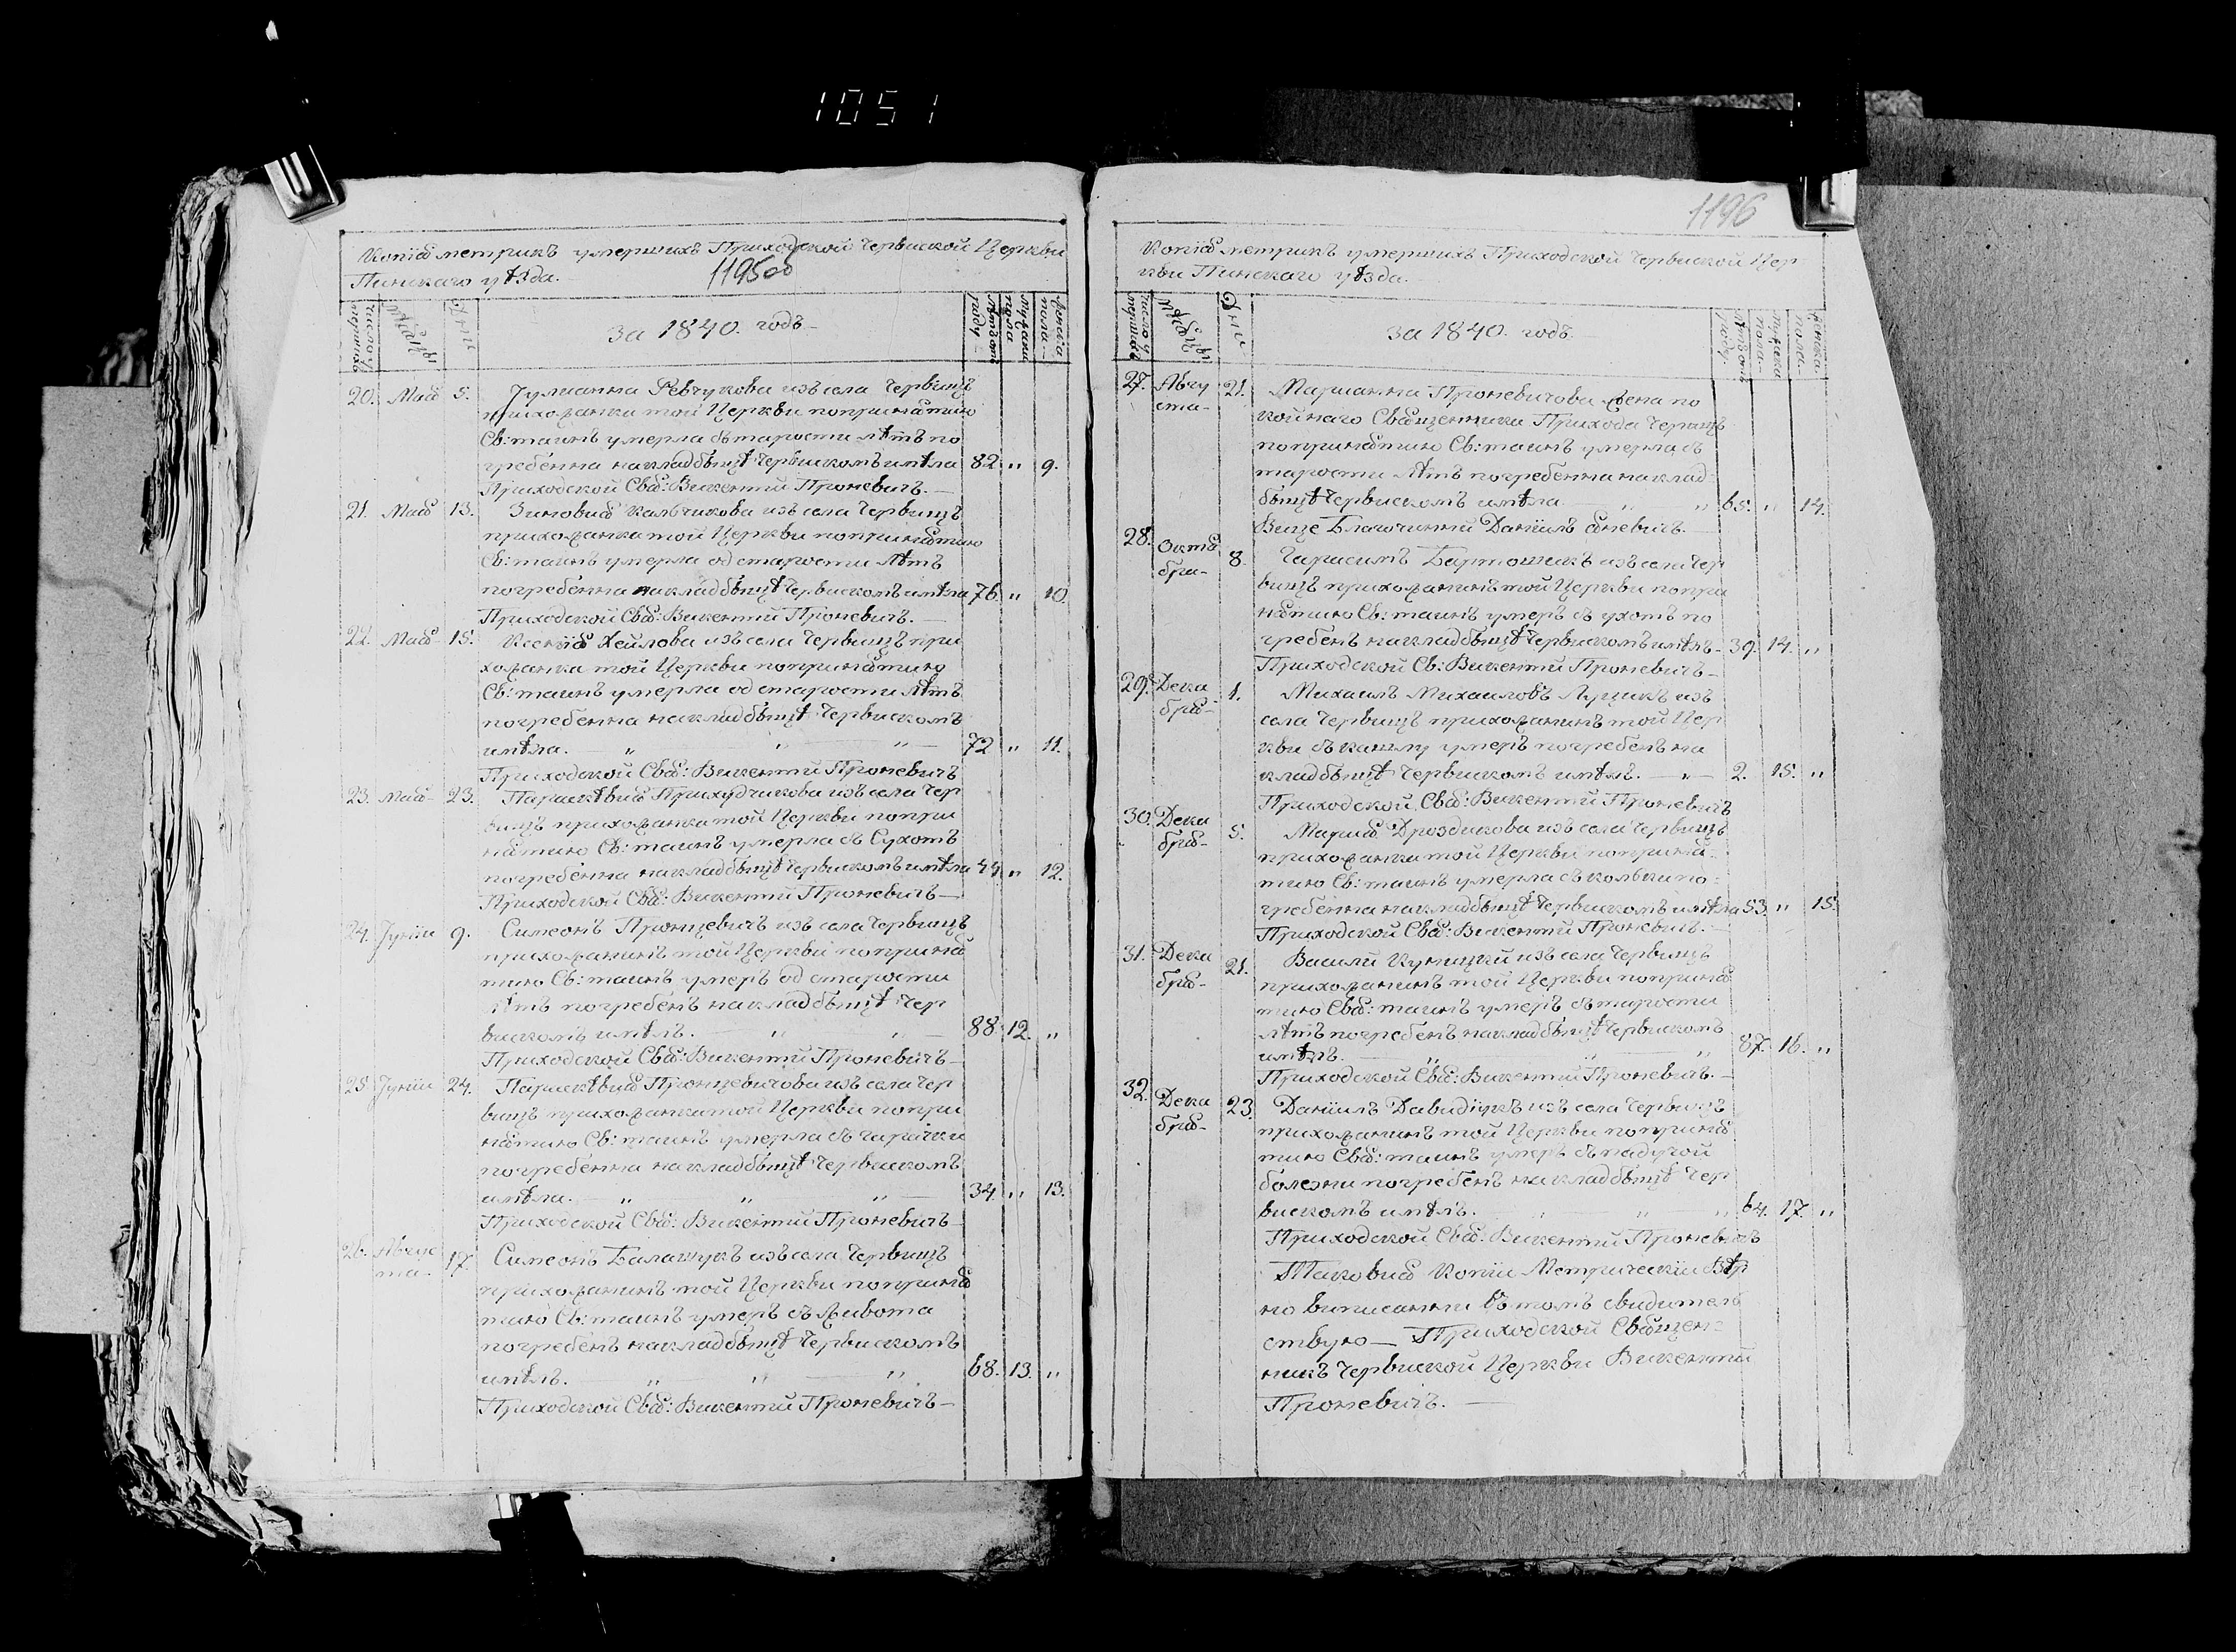 1051
Копія метрикъ умершихъ Приходской Червиской Церкви
Пинскаго уѣзда.
1195об
число умершихъ
Мѣсяцы
Дни
За 1840. годъ
Мужска пола
Женска пола
20. Мая 5. Іулианна Ревчукова изъ села Червищъ
прихожанка той Церкви по принятию
Св: таинъ умерла с старости лѣтъ по
гребенна на кладбыщѣ Червискомъ имѣла 82 „ 9.
Приходской Свя: Викентий Проневичъ.
21. Мая 13. Зиновия Кальчикова изъ села Червищъ
прихожанка той Церкви по принятию
Св: таинъ умерла од старости лѣтъ
погребенна на кладбыщѣ Червискомъ имѣла 76. „ 10.
Приходской Свя: Викентий Проневичъ.
22. Мая 15. Ксения Хейлова изъ села Червищъ при
хожанка той Церкви по принятию
Св: таинъ умерла од старости лѣтъ
погребенна на кладбыщѣ Червискомъ
имѣла. „ „ „ 72 „ 11.
Приходской Свя: Викентий Проневичъ
23. Мая 23. Параскѣвия Прихудчикова изъ села Чер
вищъ прихожанка той Церкви по при
нятию Св: таинъ умерла с Сухотъ
погребенна на кладбыщѣ Червискомъ имѣла 44 „ 12.
Приходской Свя: Викентий Проневичъ
24. Іуния 9. Симеонъ Пронцевичъ изъ села Червищъ
прихожанинъ той Церкви по приня
тию Св: таинъ умеръ од старости
лѣтъ погребенъ на кладбыщѣ Чер
вискомъ имѣлъ. „ „ 88. 12. „
Приходской Свя: Викентий Проневичъ
25 Іуния 24. Параскѣвия Пронцевичова изъ села Чер
вищъ прихожанка той Церкви по при
нятию Св: таинъ умерла с гарачки
погребенна на кладбыщѣ Червискомъ
имѣла. „ „ „ 34. „ 13.
Приходской Свя: Викентий Проневичъ
26. Авгус 17. Симеонъ Балащукъ изъ села Червищъ
та.
прихожанинъ той Церкви по приня
тию Св: таинъ умеръ съ живота
погребенъ на кладбыщѣ Червискомъ
имѣлъ. „ „ „ 68. 13. „
Приходской Свя: Викентий Проневичъ
1196
Копія метрикъ умершихъ Приходской Червиской Цер
кви Пинскаго уѣзда.
число умершихъ
Мѣсяцы
Дни
За 1840. годъ.
Мужска пола
Женска пола
27. Авгу 21. Марианна Проневичова жена по
ста
койнаго Священника Прихода Червищъ
по принятию Св: таинъ умерла с
тарости лѣтъ погребенна на клад
быщѣ Червискомъ имѣла „ „ 65. „ 14.
Вице Благочинный Данiилъ
28. Октя 8. Гарасимъ Бартошикъ изъ села Чер
бра
вищъ прихожанинъ той Церкви по при
нятию Св: таинъ умеръ с ухотъ по
гребенъ на кладбыщѣ Червискомъ имѣлъ 39. 14. „
Приходской Св: Викентий Проневичъ
29. Дека 1. Михаилъ Михаиловъ Лущикъ изъ
бря
села Червищъ прихожанинъ той Цер
кви с кашлу умеръ погребенъ на
кладбыщѣ Червискомъ имѣлъ. „ 2. 15. „
Приходской Свя: Викентий Проневичъ
30. Дека 5. Мария Дроздикова изъ села Червищъ
бря
прихожанка той Церкви по приня
тию Св: таинъ умерла съ кольки по
гребенна на кладбыщѣ Червискомъ имѣла 53. „ 15.
Приходской Свя: Викентий Проневичъ.
31. Дека 21. Василй Куницкий изъ села Червищъ
бря
прихожанинъ той Церкви по приня
тию Свя: таинъ умеръ с тарости
лѣтъ погребенъ на кладбыщѣ Червискомъ
имѣлъ. „ „ „ 87. 16. „
Приходской Свя: Викентий Проневичъ.
32. Дека 23. Данiилъ Давидiукъ изъ села Червищъ
бря
прихожанинъ той Церкви по приня
тию Свя: таинъ умеръ с падучой
болезни погребенъ на кладбыщѣ Чер
вискомъ имѣлъ. „ „ „ 64. 17. „
Приходской Свя: Викентий Проневичъ
Таковия Копіи Метрическiи Вѣр
но виписанни въ томъ свидитель
ствую — Приходской Священ
никъ Червиской Церкви Викентий
Проневичъ.